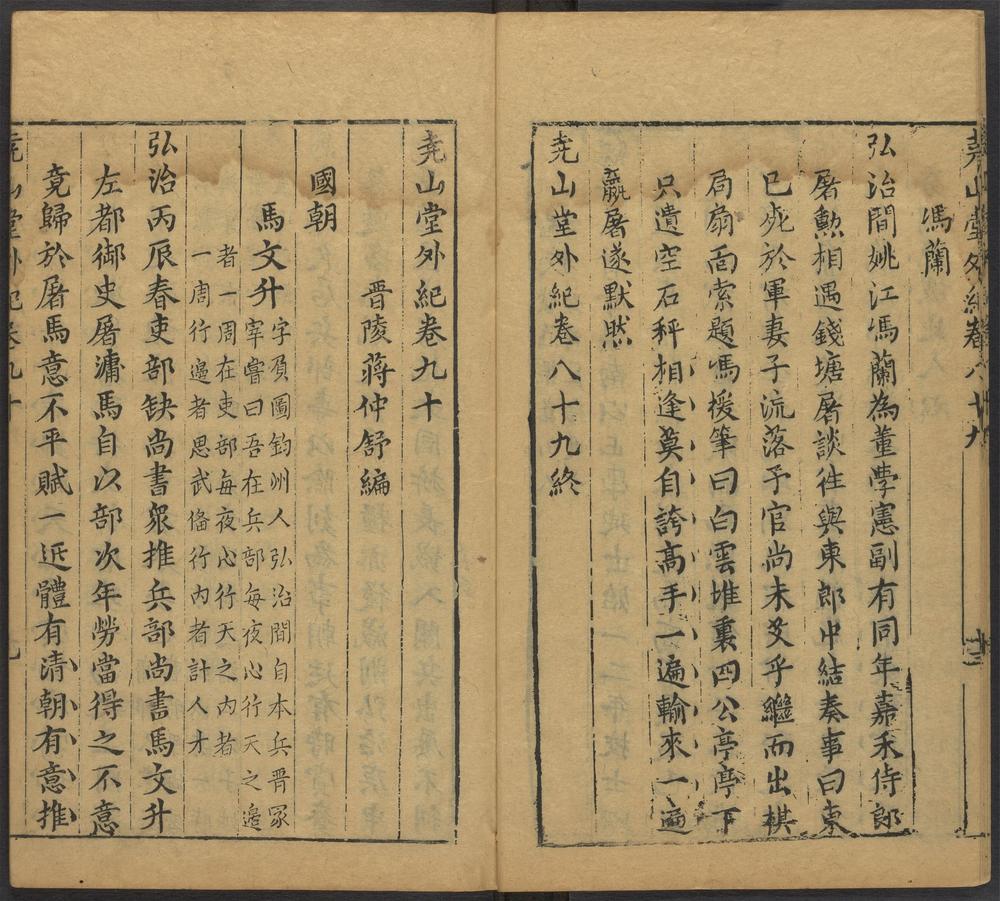 堯山堂外紀卷八十九
十三
馮蘭
弘治間姚江馮蘭為董學憲副有同年嘉禾侍郎
屠勲相遇錢塘屠談往與東郎中結奏事曰東
已死於軍妻子流落予官尚未爻乎繼而出棋
局扇面索題馮援筆曰白雲堆裏四公亭亭下
只遺空石秤相逢莫自誇高手一遍輸來一遍
贏屠遂默然
堯山堂外紀卷八十九終
堯山堂外紀卷九十
晋陵蔣仲舒編
國朝
馬文升字負圖鈞州人弘治間自本兵晋冢
宰嘗曰吾在兵部每夜心行天之邉
者一周在吏部每夜心行天之内者
一周行邉者思武俻行内者計人才
弘治丙辰春吏部缺尚書衆推兵部尚書馬文升
左都御史屠滽馬自以部次年勞當得之不意
竟歸於屠馬意不平賦一近體有清朝有意推
堯山堂外紀卷九十